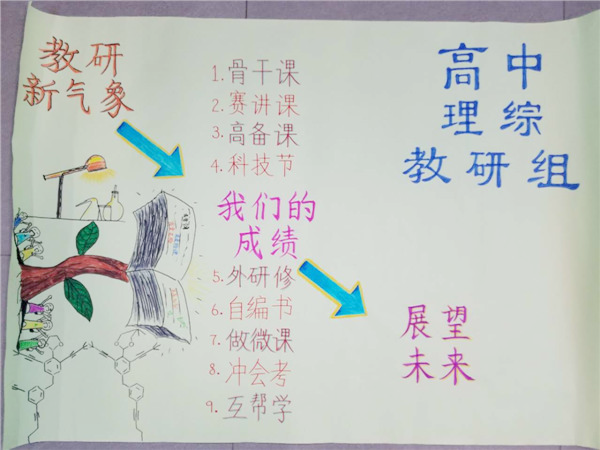 教研
新气象
1.骨干课
2.赛讲课
3.高备课
4.科技节
我们的
成绩
5.外研修
6.自编书
7.做微课
8.冲会考
9.互帮学
高中
理综
教研组
展望
未来